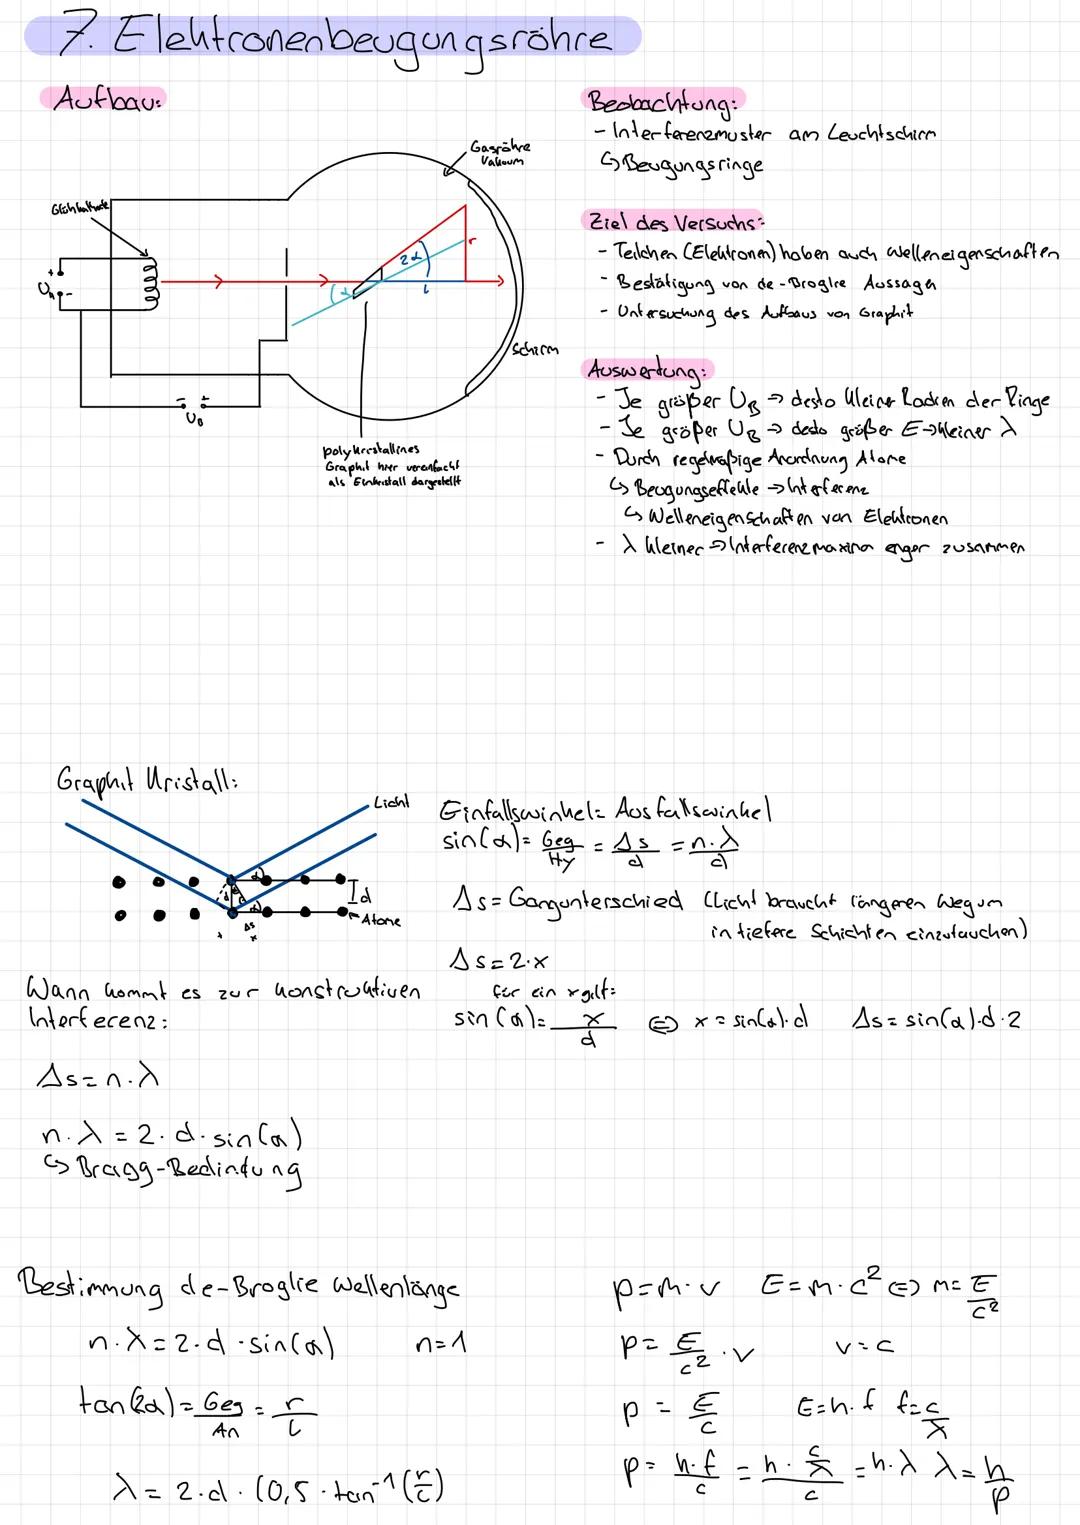 7. Elektronenbeugungsröhre
Aufbau:
Glühkathode
U_H + -
- + U_B
Gasröhre
Vakuum
2α
α
r
l
Schirm
polykristallines
Graphit hier vereinfacht
als Einkristall dargestellt
Beobachtung:
- Interferenzmuster am Leuchtschirm
↳ Beugungsringe
Ziel des Versuchs:
- Teilchen (Elektronen) haben auch Welleneigenschaften
- Bestätigung von de-Broglie Aussagen
- Untersuchung des Aufbaus von Graphit
Auswertung:
- Je größer U_B → desto kleiner Radien der Ringe
- Je größer U_B → desto größer E → kleiner λ
- Durch regelmäßige Anordnung Atome
↳ Beugungseffekte → Interferenz
↳ Welleneigenschaften von Elektronen
- λ kleiner → Interferenzmaxima enger zusammen
Graphit Kristall:
Licht
d
Atome
α
α
Δs
x
Einfallswinkel = Ausfallswinkel
sin(α) = Geg/Hy = Δs/d = n·λ/d
Δs = Gangunterschied (Licht braucht längeren Weg um
in tiefere Schichten einzutauchen)
Δs = 2·x
für ein x gilt:
sin(α) = x/d ⇔ x = sin(α)·d Δs = sin(α)·d·2
Wann kommt es zur konstruktiven
Interferenz:
Δs = n·λ
n·λ = 2·d·sin(α)
↳ Bragg-Bedindung
Bestimmung de-Broglie Wellenlänge
n·λ = 2·d·sin(α) n=1
tan(2α) = Geg/An = r/l
λ = 2·d·(0,5·tan⁻¹(r/l)
p = m·v E = m·c² ⇔ m = E/c²
p = E/c² · v v = c
p = E/c E = h·f f = c/λ
p = h·f/c = h·(c/λ)/c = h·λ λ = h/p